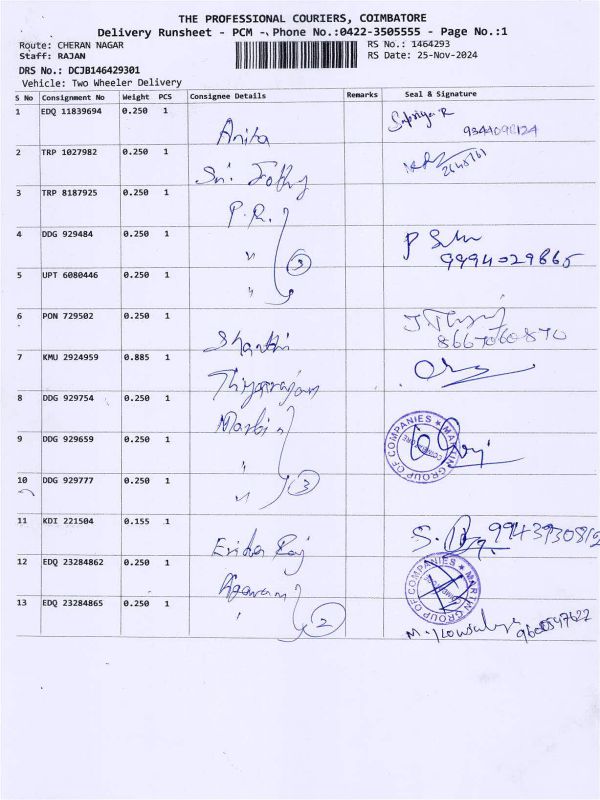 THE PROFESSIONAL COURIERS, COIMBATORE
Delivery Runsheet - PCM - Phone No.:0422-3505555 - Page No.:1
Route: CHERAN NAGAR RS No.: 1464293
Staff: RAJAN RS Date: 25-Nov-2024
DRS No.: DCJB146429301
Vehicle: Two Wheeler Delivery
S No Consignment No Weight PCS Consignee Details Remarks Seal & Signature
1 EDQ 11839694 0.250 1 Anita
2 TRP 1027982 0.250 1 Sri
3 TRP 8187925 0.250 1 P.R.
4 DDG 929484 0.250 1 " 9994029865
5 UPT 6080446 0.250 1 " 3
6 PON 729502 0.250 1 Shanthi 8667060870
7 KMU 2924959 0.885 1 Thiyagarajan
8 DDG 929754 0.250 1 Martin
9 DDG 929659 0.250 1 " MARTIN GROUP OF COMPANIES ★ COIMBATORE
10 DDG 929777 0.250 1 " 3
11 KDI 221504 0.155 1 Raj
12 EDQ 23284862 0.250 1 MARTIN GROUP OF COMPANIES ★
13 EDQ 23284865 0.250 1 " 2 9600547622